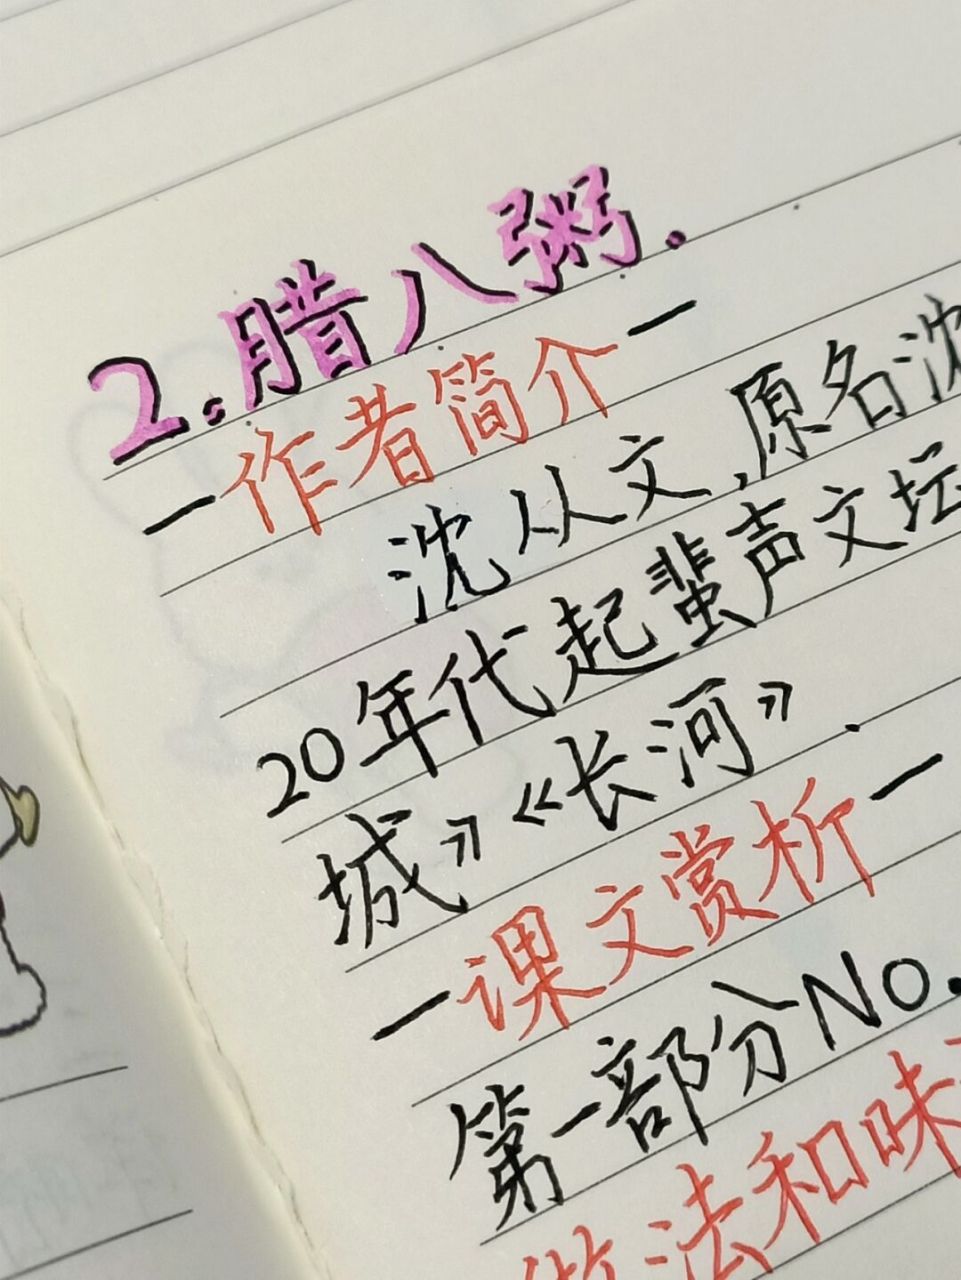 2.腊八粥.
一作者简介一
沈从文,原名沈
20年代起蜚声文坛
城》《长河》.
一课文赏析一
第一部分No.
做法和味